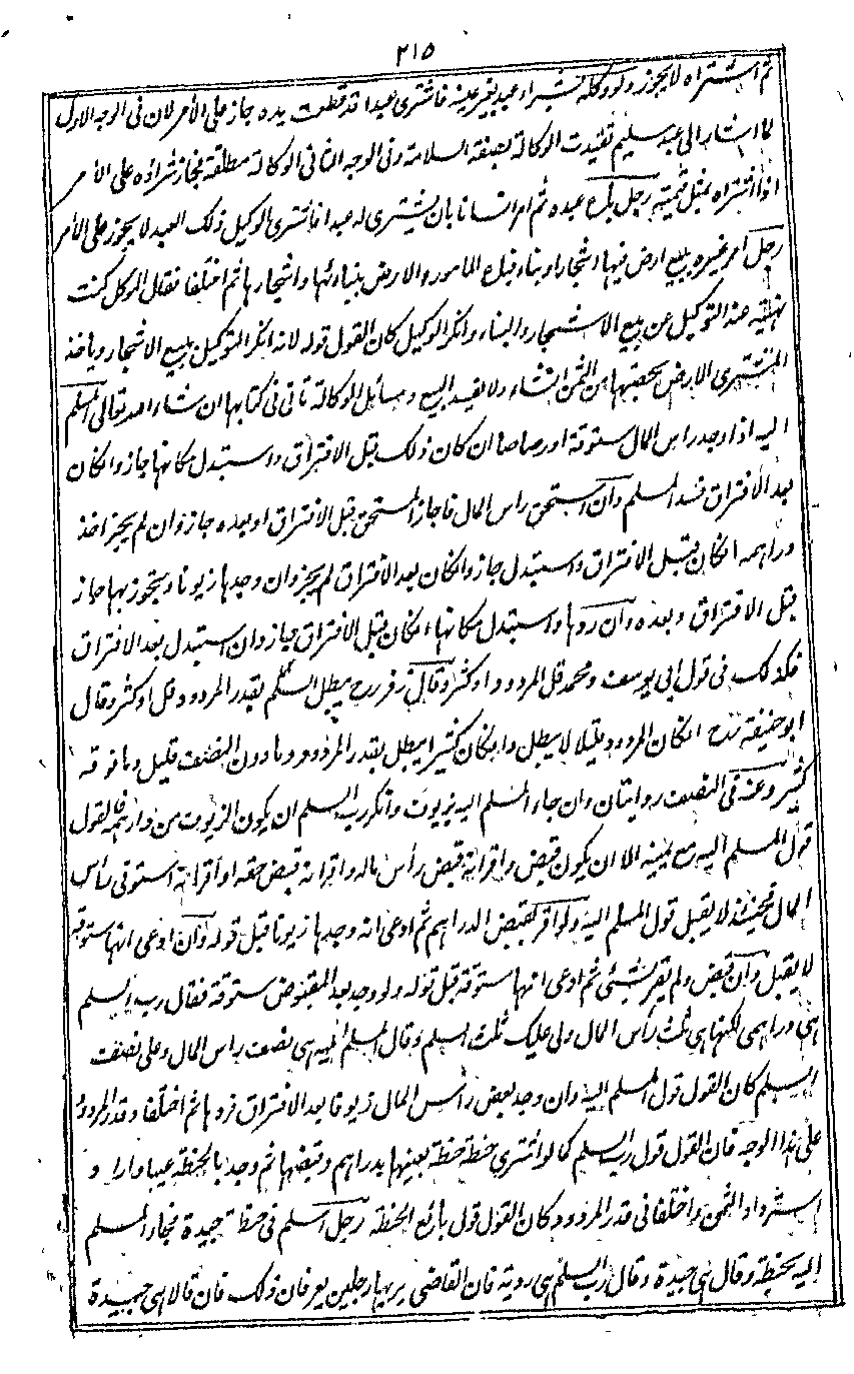 ٢١٥
ثم اشتراه لا يجوز ولو وكله بشراء عبد بغير عينه فاشترى عبدا قد قطعت يده جاز على الآمر لان فى الوجه الاول
لما اشار الى عبد سليم تقيدت الوكالة بصفة السلامة وفى الوجه الثانى الوكالة مطلقة فجاز شراؤه على الآمر
اذا اشتراه بمثل قيمته رجل باع عبده ثم امر انسانا بان يشترى له عبدا فاشترى الوكيل ذلك العبد لا يجوز على الآمر
رجل امر غيره ببيع ارض فيها اشجار او بناء فباع المامور الارض ببنائها واشجارها ثم اختلفا فقال الموكل كنت
نهيته عند التوكيل عن بيع الاشجار والبناء وانكر الوكيل كان القول قوله لانه انكر التوكيل ببيع الاشجار وياخذ
المشترى الارض بحصتها من الثمن ان شاء ولا يفسد البيع ومسائل الوكالة تاتى فى كتابها ان شاء الله تعالى المسلم
اليه اذا وجد راس المال ستوقة او رصاصا ان كان ذلك قبل الافتراق واستبدل مكانها جاز وان كان
بعد الافتراق فسد السلم وان استحق راس المال فاجاز المستحق قبل الافتراق او بعده جاز وان لم يجز اخذ
دراهمه انكان قبل الافتراق واستبدل جاز وانكان بعد الافتراق لم يجز وان وجدها زيوفا وتجوز بها جاز
قبل الافتراق وبعده وان ردها واستبدل مكانها انكان قبل الافتراق جاز وان استبدل بعد الافتراق
فكذلك فى قول ابى يوسف ومحمد قل المردود او كثر وقال زفر رح يبطل السلم بقدر المردود قل او كثر وقال
ابو حنيفة رح انكان المردود قليلا لا يبطل وان كان كثيرا يبطل بقدر المردود وما دون النصف قليل وما فوقه
كثير وعنه فى النصف روايتان وان جاء المسلم اليه بزيوف وانكر رب السلم ان يكون الزيوف من دراهمه فالقول
قول المسلم اليه مع يمينه الا ان يكون قبض واقر انه قبض رأس ماله واقر انه قبض حقه او اقر انه استوفى رأس
المال فحينئذ لا يقبل قول المسلم اليه ولو اقر بقبض الدراهم ثم ادعى انه وجدها زيوفا قبل قوله وان ادعى انها ستوقة
لا يقبل وان قبض ولم يقر بشئ ثم ادعى انها ستوقة قبل قوله ولو وجد بعد المقبوض ستوقة فقال رب السلم
هى دراهمى لكنها هى ثلث رأس المال ولى عليك ثلث السلم وقال المسلم اليه هى نصف راس المال وعلى نصف
السلم كان القول قول المسلم اليه وان وجد بعض رأس المال زيوفا بعد الافتراق فردها ثم اختلفا فى قدر المردود
على هذا الوجه فان القول قول رب السلم كما لو اشترى حنطة بعينها بدراهم وقبضها ثم وجد بالحنطة عيبا واراد
استرداد الثمن واختلفا فى قدر المردود كان القول قول بائع الحنطة رجل اسلم فى حنطة جيدة فجاء المسلم
اليه بحنطة وقال هى جيدة وقال رب السلم هى ردية فان القاضى يريها رجلين يعرفان ذلك فان قالا هى جيدة